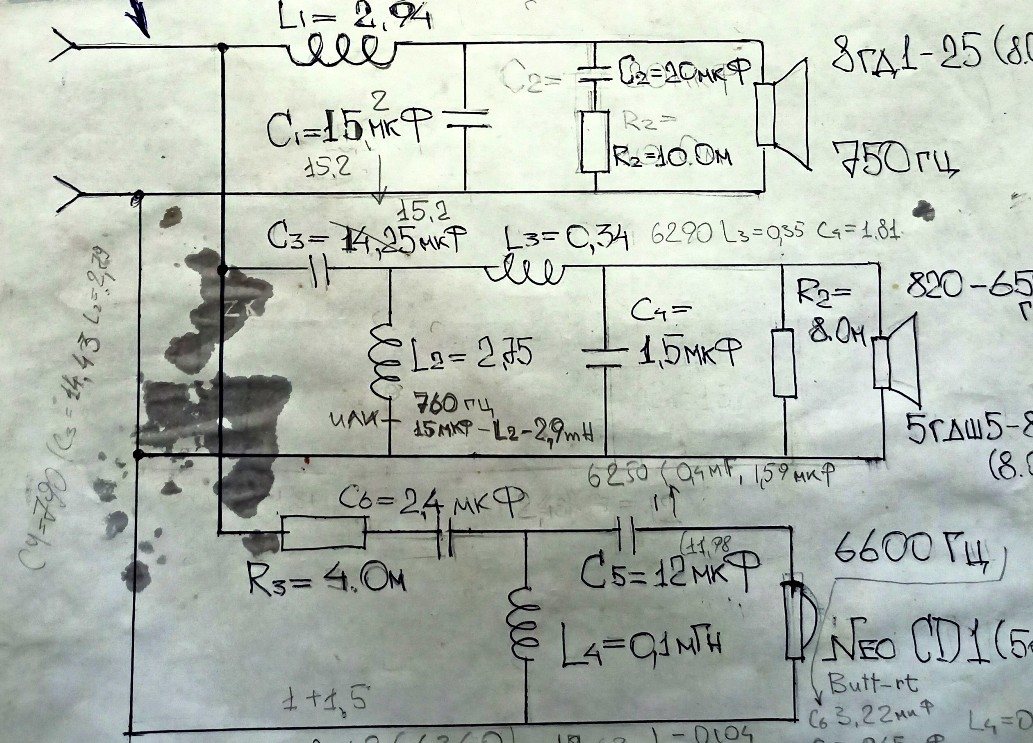 L1= 2,94
C2= C2=20мкФ
8гд1-25 (8.0
2
C1=15,мкФ
R2=
R2=10.0м
15,2
750гц
15,2
C3= 14,25мкФ
L3=0,34
6290 L3=0,35 C4=1.81
R2=
8.0м
820-65
C4=
1,5мкФ
L2= 2,75
760гц
или
15мкф-L2-2,9mH
5гдш5-8
(8.0
6250 (0,4мГ, 1,59мкф
C6=2,4 мкФ
R3= 4.0м
(11,98
C5=12мкФ
6600 Гц
L4=0,1мГн
NEO CD1(5
Butt-rt
C6 3,22мкФ
1+1,5
L4=0